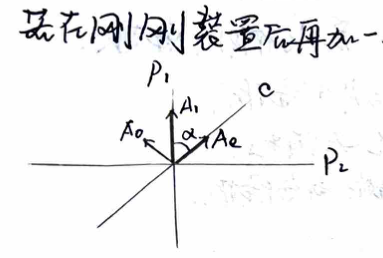 若在刚刚装置后再加一
P₁
C
A₁
A₀ α Ae
P₂